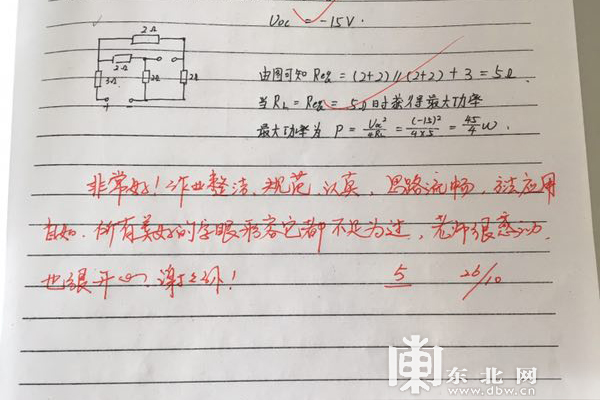 Uoc = -15V.
2Ω
2Ω
3Ω
2Ω
2Ω
由图可知 Req = (2+2)//(2+2) + 3 = 5Ω
当 RL = Req = 5Ω 时获得最大功率
最大功率为 P = Uoc²/4RL = (-15)²/4×5 = 45/4 W.
非常好！作业整洁、规范、认真，思路流畅，方法应用
自如。所有美好的字眼形容它都不足为过，老师很感动，
也很开心，谢
5
26/10
東北网
www.dbw.cn